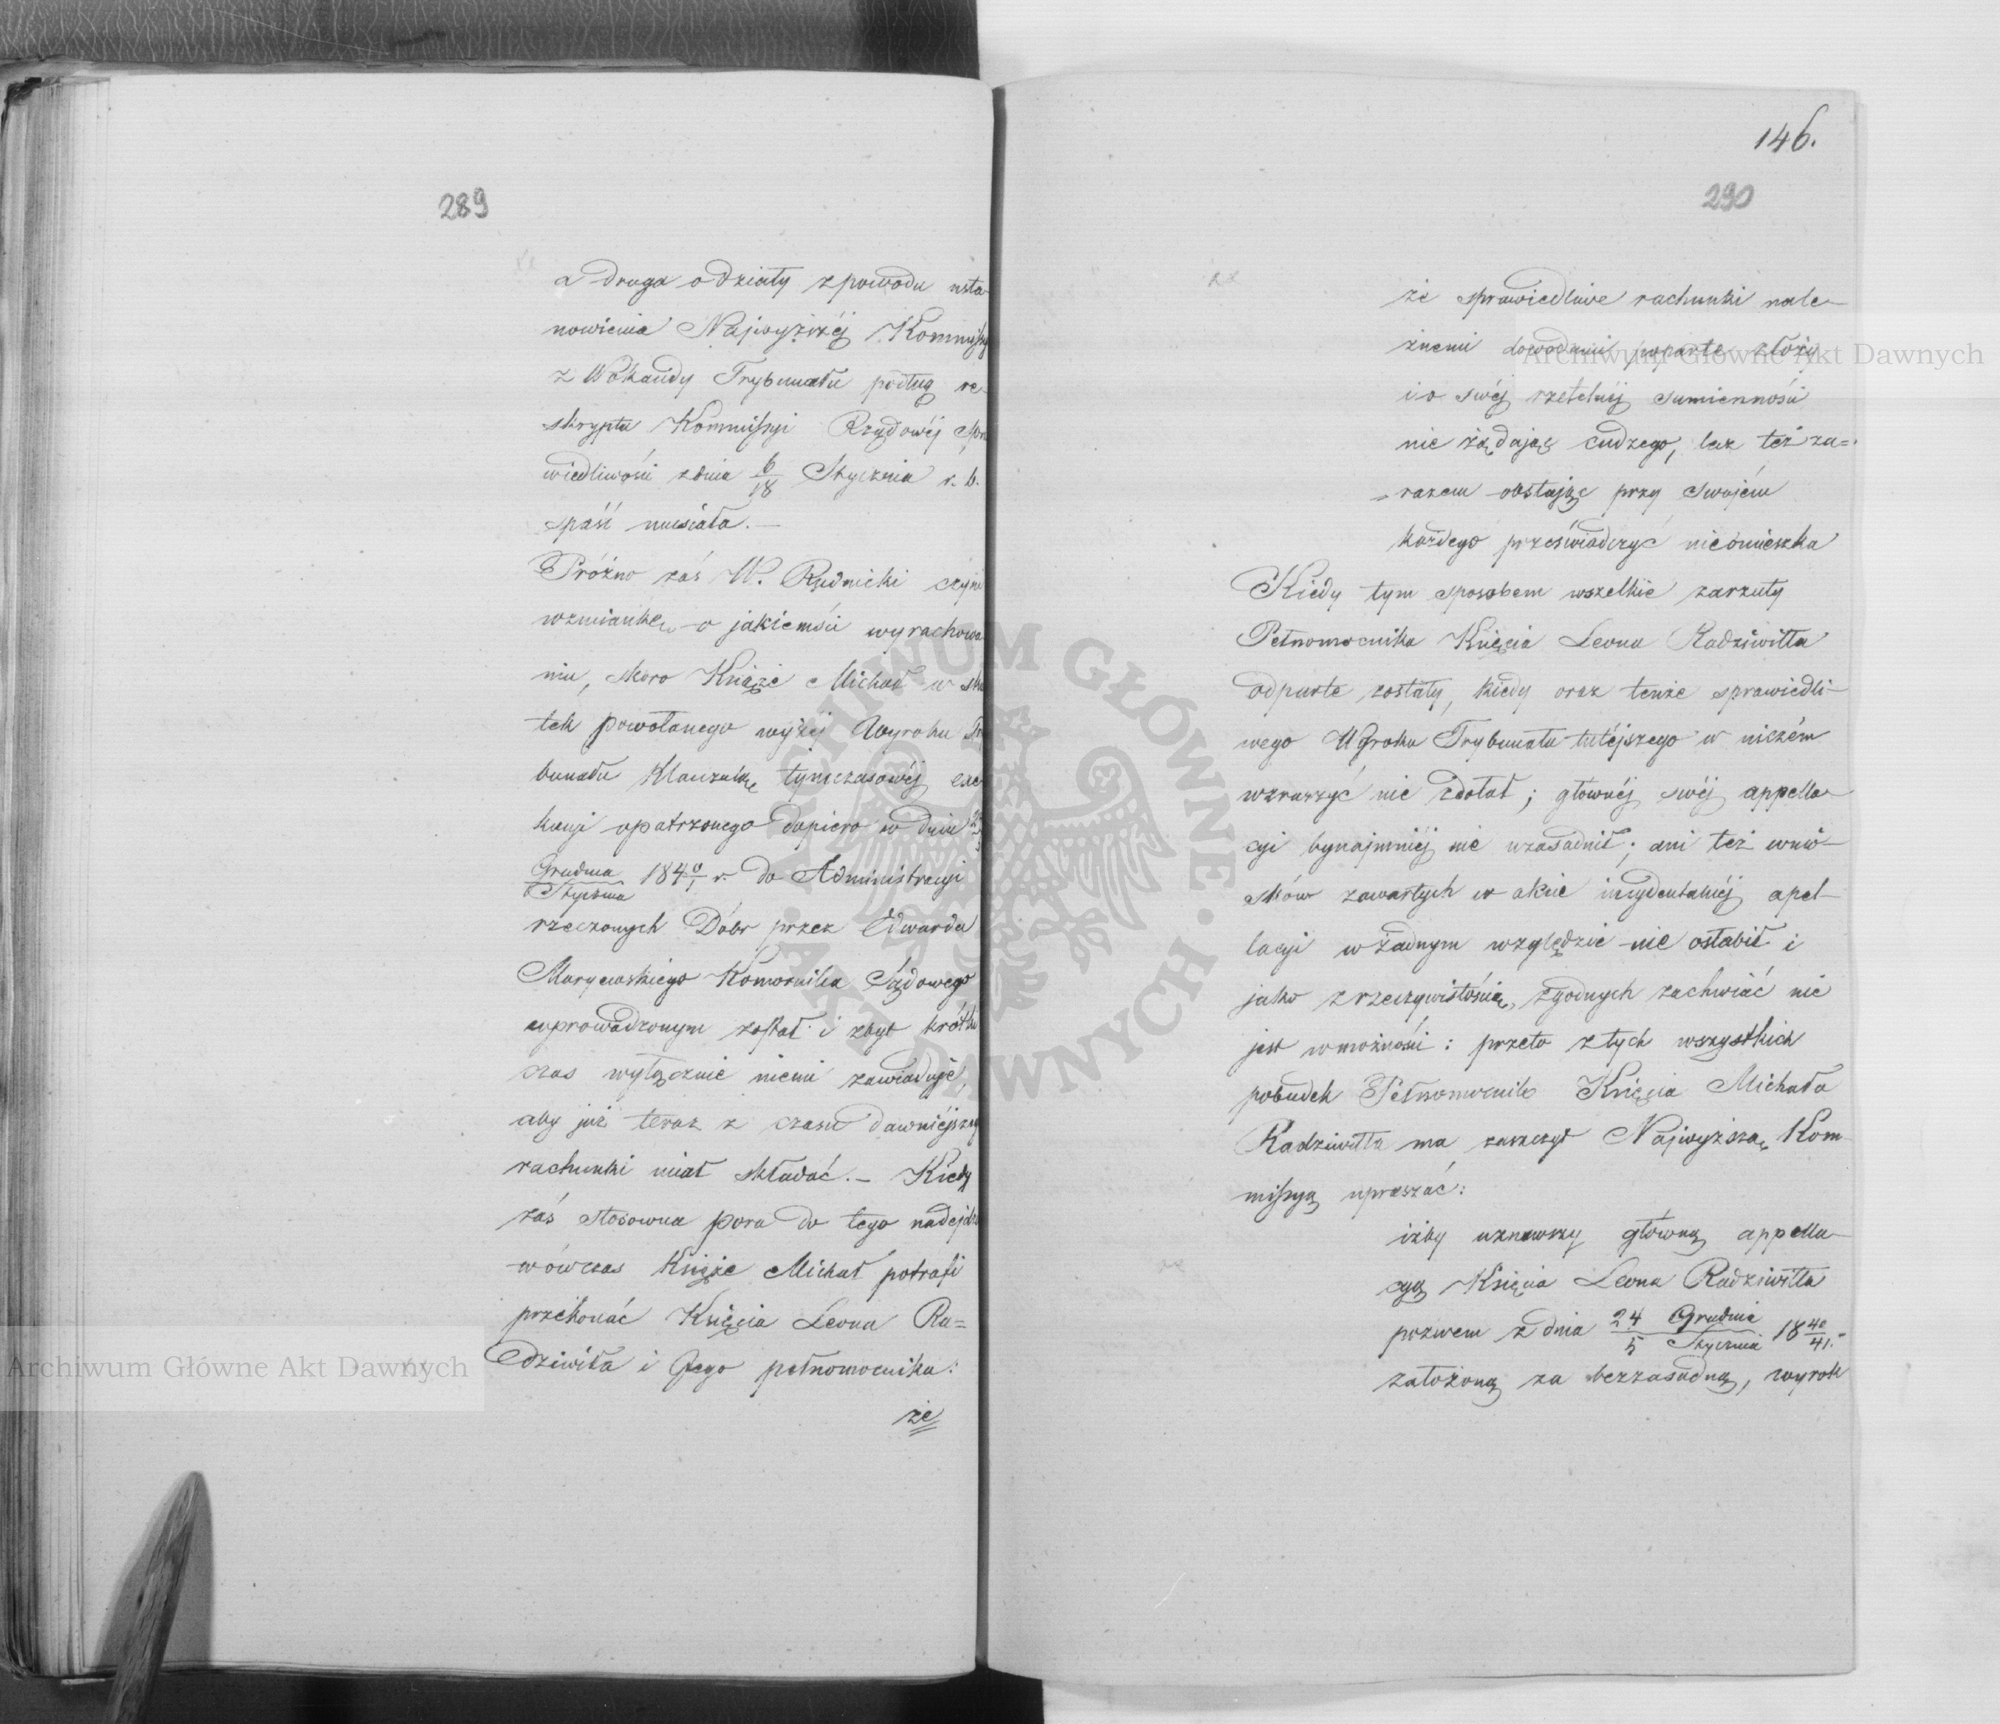 289
a druga o działy z powodu usta-
nowienia Najwyższéj Kommissyi
z Wokandy Trybunału podług re-
skryptu Kommissyi Rządowéj Spra
wiedliwości z dnia 6/18 Stycznia r. b.
spaść musiała. —
Próżno zaś W. Rudnicki czyni
wzmiankę o jakiemściś wyrachowa
niu, skoro Książe Michał w sku
tek powołanego wyżéj Wyroku Try
bunału klauzulą tymczasowéj exe
kucyi opatrzonego dopiero w dniu
Grudnia/Stycznia 184 0/1 r. do Administracyi
rzeczonych Dóbr przez Edwarda
Komornika Sądowego
wprowadzonym został i zbyt krótki
czas wyłącznie niemi zawiaduje,
aby już teraz z czasu dawniejszego
rachunki miał składać. — Kiedy
zaś stosowna pora do tego nadejdzie
wówczas Książe Michał potrafi
przekonać Księcia Leona Ra=
dziwiła i Jego pełnomocnika:
że
146.
290
że sprawiedliwe rachunki nale-
żnemi dowodami poparte złoży
i o swéj rzetelnéj sumienności
nie żądając cudzego, lecz też za=
razem obstając przy swojém
każdego przeświadczyć nieomieszka
Kiedy tym sposobem wszelkie zarzuty
Pełnomocnika Księcia Leona Radziwiłła
odparte zostały, kiedy oraz tenże sprawiedli-
wego Wyroku Trybunału tutéjszego w niczém
wzruszyć nie zdołał; głównéj swéj appella-
cyi bynajmniéj nie uzasadnił; ani też wnio-
sków zawartych w akcie incydentalnéj apel-
lacyi w żadnym względzie nie osłabił i
jako z rzeczywistością zgodnych zachwiać nie
jest w możności: przeto z tych wszystkich
pobudek Pełnomocnik Księcia Michała
Radziwiłła ma zaszczyt Najwyższą Kom-
missyą upraszać:
iżby uznawszy główną appella-
cyą Księcia Leona Radziwiłła
pozwem z dnia 24 Grudnia/5 Stycznia 18 40/41.
założoną za bezzasadną, wyrok
Archiwum Główne Akt Dawnych
Archiwum Główne Akt Dawnych
ARCHIWUM GŁÓWNE AKT DAWNYCH